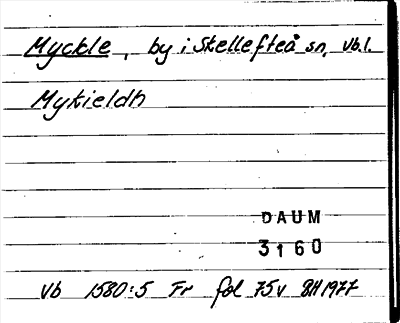 Myckle, by i Skellefteå sn, Vb.l.
Mykieldh
DAUM
3160
Vb 1580:5 Fr fol 75v BH 1977